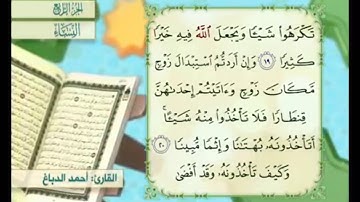 الجزء الرابع
النساء
تَكْرَهُوا۟ شَيْـًٔا وَيَجْعَلَ ٱللَّهُ فِيهِ خَيْرًا
كَثِيرًا ١٩ وَإِنْ أَرَدتُّمُ ٱسْتِبْدَالَ زَوْجٍ
مَّكَانَ زَوْجٍ وَءَاتَيْتُمْ إِحْدَىٰهُنَّ
قِنطَارًا فَلَا تَأْخُذُوا۟ مِنْهُ شَيْـًٔا ۚ
أَتَأْخُذُونَهُۥ بُهْتَـٰنًا وَإِثْمًا مُّبِينًا ٢٠
وَكَيْفَ تَأْخُذُونَهُۥ وَقَدْ أَفْضَىٰ
القارئ: أحمد الدباغ